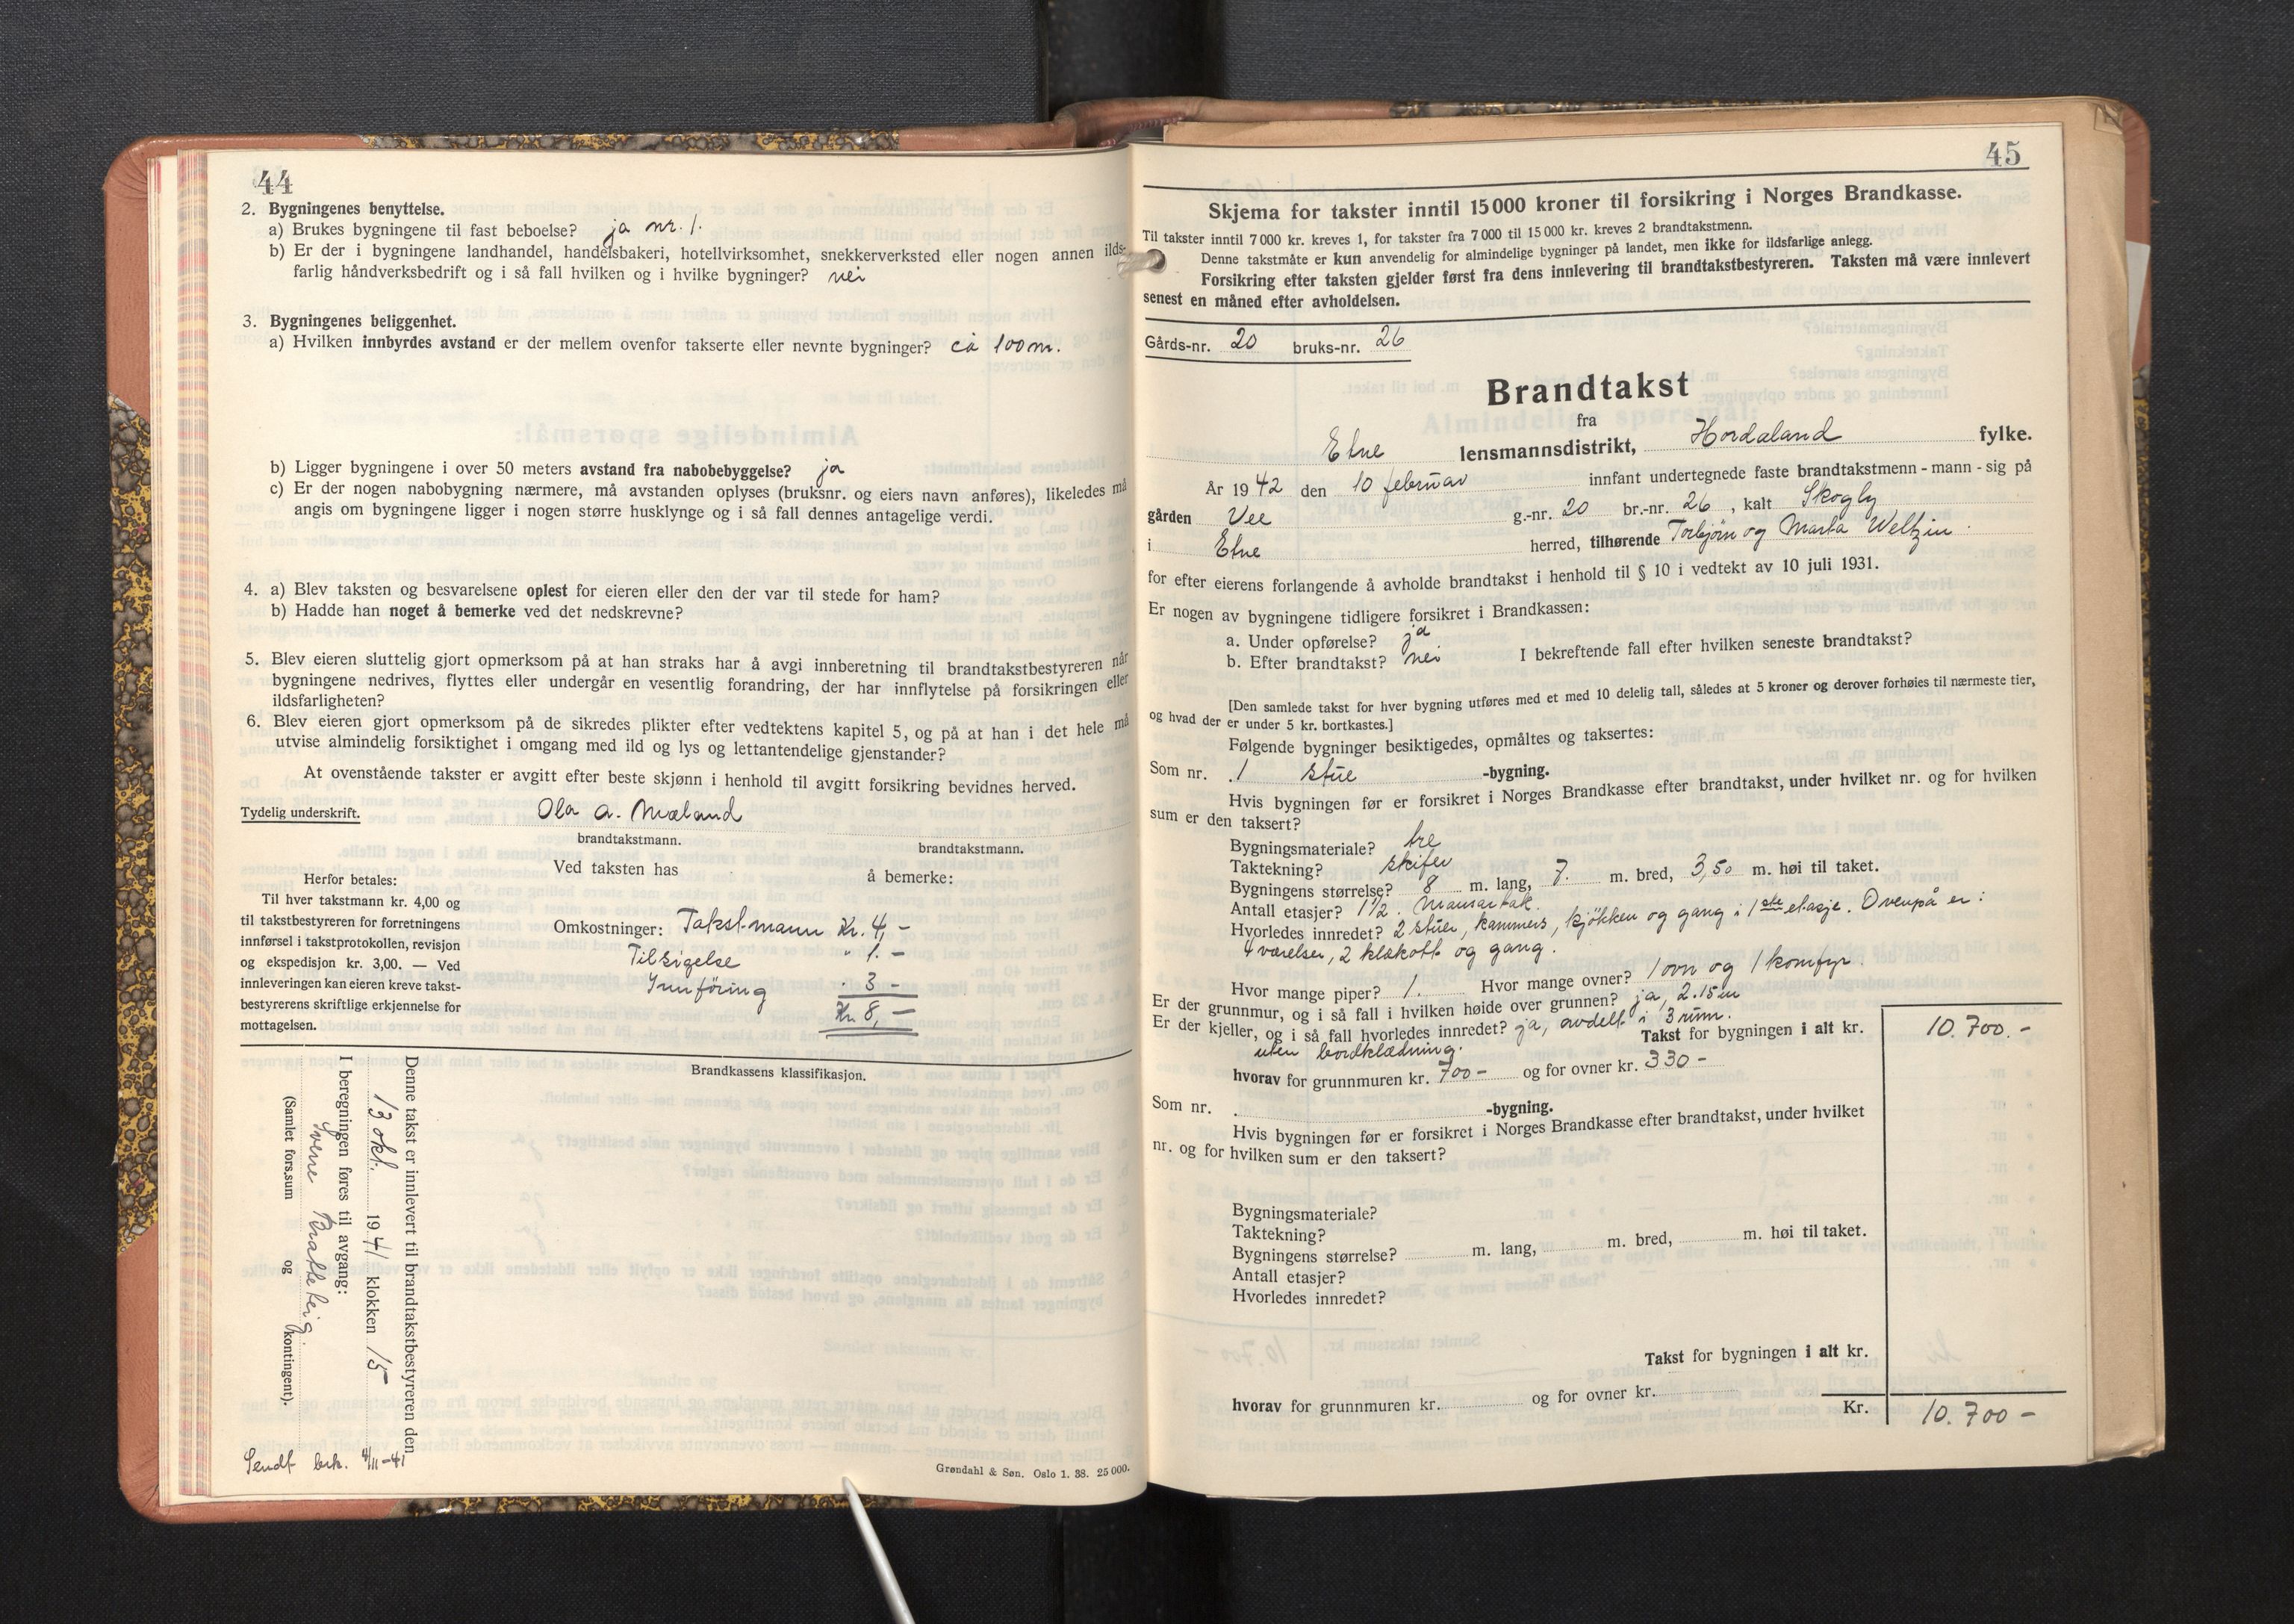 44
2. Bygningenes benyttelse.
a) Brukes bygningene til fast beboelse? ja nr. 1.
b) Er der i bygningene landhandel, handelsbakeri, hotellvirksomhet, snekkerverksted eller nogen annen ilds-
farlig håndverksbedrift og i så fall hvilken og i hvilke bygninger? nei
3. Bygningenes beliggenhet.
a) Hvilken innbyrdes avstand er der mellem ovenfor takserte eller nevnte bygninger? ca 100 m.
b) Ligger bygningene i over 50 meters avstand fra nabobebyggelse? ja
c) Er der nogen nabobygning nærmere, må avstanden oplyses (bruksnr. og eiers navn anføres), likeledes må
angis om bygningene ligger i nogen større husklynge og i så fall dennes antagelige verdi.
4. a) Blev taksten og besvarelsene oplest for eieren eller den der var til stede for ham?
b) Hadde han noget å bemerke ved det nedskrevne?
5. Blev eieren sluttelig gjort opmerksom på at han straks har å avgi innberetning til brandtakstbestyreren når
bygningene nedrives, flyttes eller undergår en vesentlig forandring, der har innflytelse på forsikringen eller
ildsfarligheten?
6. Blev eieren gjort opmerksom på de sikredes plikter efter vedtektens kapitel 5, og på at han i det hele må
utvise almindelig forsiktighet i omgang med ild og lys og lettantendelige gjenstander?
At ovenstående takster er avgitt efter beste skjønn i henhold til avgitt forsikring bevidnes herved.
Tydelig underskrift. Ola A. Mæland
brandtakstmann. brandtakstmann.
Ved taksten has å bemerke:
Herfor betales:
Til hver takstmann kr. 4,00 og
til takstbestyreren for forretningens
innførsel i takstprotokollen, revisjon
og ekspedisjon kr. 3,00. — Ved
innleveringen kan eieren kreve takst-
bestyrerens skriftlige erkjennelse for
mottagelsen.
Omkostninger: Takst.mann Kr. 4,-
Tilsigelse " 1.-
Innföring . 3 -
Kr. 8,-
Brandkassens klassifikasjon.
Denne takst er innlevert til brandtakstbestyreren den
13 okt. 1941 klokken 15
I beregningen føres til avgang:
Sverre Bratteteig.
(Samlet fors.sum og kontingent).
Sendt brk. 4/11-41
Grøndahl & Søn. Oslo 1. 38. 25 000.
45
Skjema for takster inntil 15 000 kroner til forsikring i Norges Brandkasse.
Til takster inntil 7 000 kr. kreves 1, for takster fra 7 000 til 15 000 kr. kreves 2 brandtakstmenn.
Denne takstmåte er kun anvendelig for almindelige bygninger på landet, men ikke for ildsfarlige anlegg.
Forsikring efter taksten gjelder først fra dens innlevering til brandtakstbestyreren. Taksten må være innlevert
senest en måned efter avholdelsen.
Gårds-nr. 20 bruks-nr. 26
Brandtakst
fra
Etne lensmannsdistrikt, Hordaland fylke.
År 1942 den 10 februar innfant undertegnede faste brandtakstmenn - mann - sig på
gården Vee g.-nr. 20 br.-nr. 26, kalt Skogly
i Etne herred, tilhørende Torbjørn og Marta Weltzin.
for efter eierens forlangende å avholde brandtakst i henhold til § 10 i vedtekt av 10 juli 1931.
Er nogen av bygningene tidligere forsikret i Brandkassen:
a. Under opførelse? ja
b. Efter brandtakst? nei I bekreftende fall efter hvilken seneste brandtakst?
[Den samlede takst for hver bygning utføres med et med 10 delelig tall, således at 5 kroner og derover forhøies til nærmeste tier,
og hvad der er under 5 kr. bortkastes.]
Følgende bygninger besiktigedes, opmåltes og taksertes:
Som nr. 1 stue -bygning.
Hvis bygningen før er forsikret i Norges Brandkasse efter brandtakst, under hvilket nr. og for hvilken
sum er den taksert?
Bygningsmateriale? tre
Taktekning? skifer
Bygningens størrelse? 8 m. lang, 7. m. bred, 3,50 m. høi til taket.
Antall etasjer? 1 1/2. Mansartak.
Hvorledes innredet? 2 stuer, kammers, kjökken og gang i 1ste etasje. Ovenpå er:
4 værelser, 2 klskott og gang.
Hvor mange piper? 1. Hvor mange ovner? 1 ovn og 1 komfyr.
Er der grunnmur, og i så fall i hvilken høide over grunnen? ja, 2.15 m
Er der kjeller, og i så fall hvorledes innredet? ja, avdelt i 3 rum.
uten bordklædning.
Takst for bygningen i alt kr. 10.700.-
hvorav for grunnmuren kr. 700- og for ovner kr. 330-
Som nr. -bygning.
Hvis bygningen før er forsikret i Norges Brandkasse efter brandtakst, under hvilket
nr. og for hvilken sum er den taksert?
Bygningsmateriale?
Taktekning?
Bygningens størrelse? m. lang, m. bred, m. høi til taket.
Antall etasjer?
Hvorledes innredet?
Takst for bygningen i alt kr.
hvorav for grunnmuren kr. og for ovner kr.
Kr. 10.700-